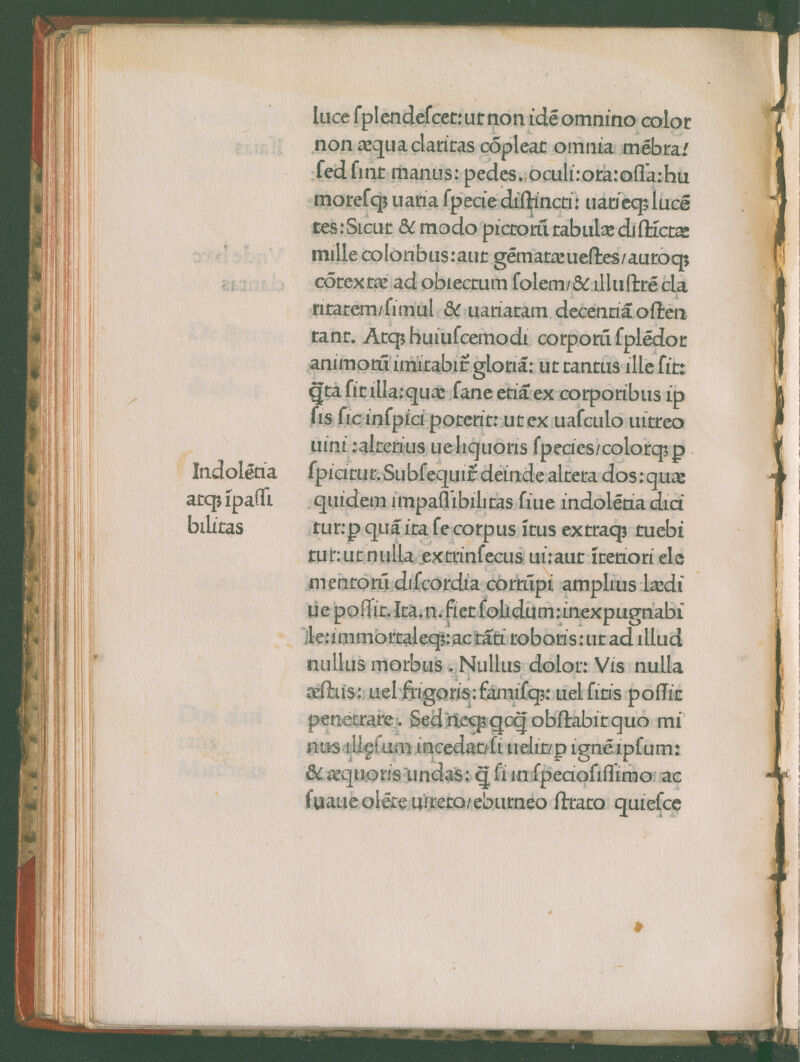 luce ſplendeſcet: ut non idē omnino color
non æqua claritas cōpleat omnia mēbra/
ſed ſint manus: pedes. oculi: ora: oſſa: hu
moreſqꝫ uaria ſpecie diſtincti: uarieqꝫ lucē
tes: Sicut & modo pictorū tabulæ diſtīctæ
mille coloribus: aut gēmatæ ueſtes/ auroqꝫ
cōtextæ ad obiectum ſolem/ & illuſtrē cla
ritatem/ ſimul & uariatam decentiā oſten
tant. Atqꝫ huiuſcemodi corporū ſplēdor
animorū imitabit᷑ gloriā: ut tantus ille ſit:
q̄̄ta ſit illa: quæ ſane etiā ex corporibus ip
ſis ſic inſpici poterit: ut ex uaſculo uitreo
uini : alterius ue liquoris ſpecies/ colorqꝫ ꝑ
ſpicitur. Subſequit᷑ deinde altera dos: quæ
Indolētia
atqꝫ īpaſſi
bilitas
quidem impaſſibilitas ſiue indolētia dici
tur: ꝑ quā ita ſe corpus ītus extraqꝫ tuebi
tur: ut nulla extrinſecus ui: aut īteriori ele
mentorū diſcordia corrūpi amplius lædi
ue poſſit. Ita .n. fiet ſolidum: inexpugnabi
le: immortaleqꝫ: ac tāti roboris: ut ad illud
nullus morbus . Nullus dolor: Vis nulla
æſtus: uel frigoris: famiſqꝫ: uel ſitis poſſit
penetrare . Sed neqꝫ qcq̄ obſtabit quo mi
nus illęſum incedat/ ſi uelit/ ꝑ ignē ipſum:
& æquoris undas: q̄ ſi in ſpecioſiſſimo ac
ſuaue olēte uireto/ eburneo ſtrato quieſce